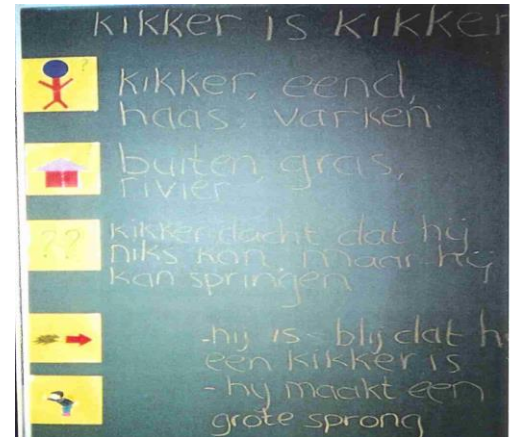 kikker is kikker
kikker, eend,
haas, varken
buiten, gras,
rivier
??
kikker dacht dat hij
niks kan, maar hij
kan springen
-hij is blij dat h
een kikker is
-hij maakt een
grote sprong